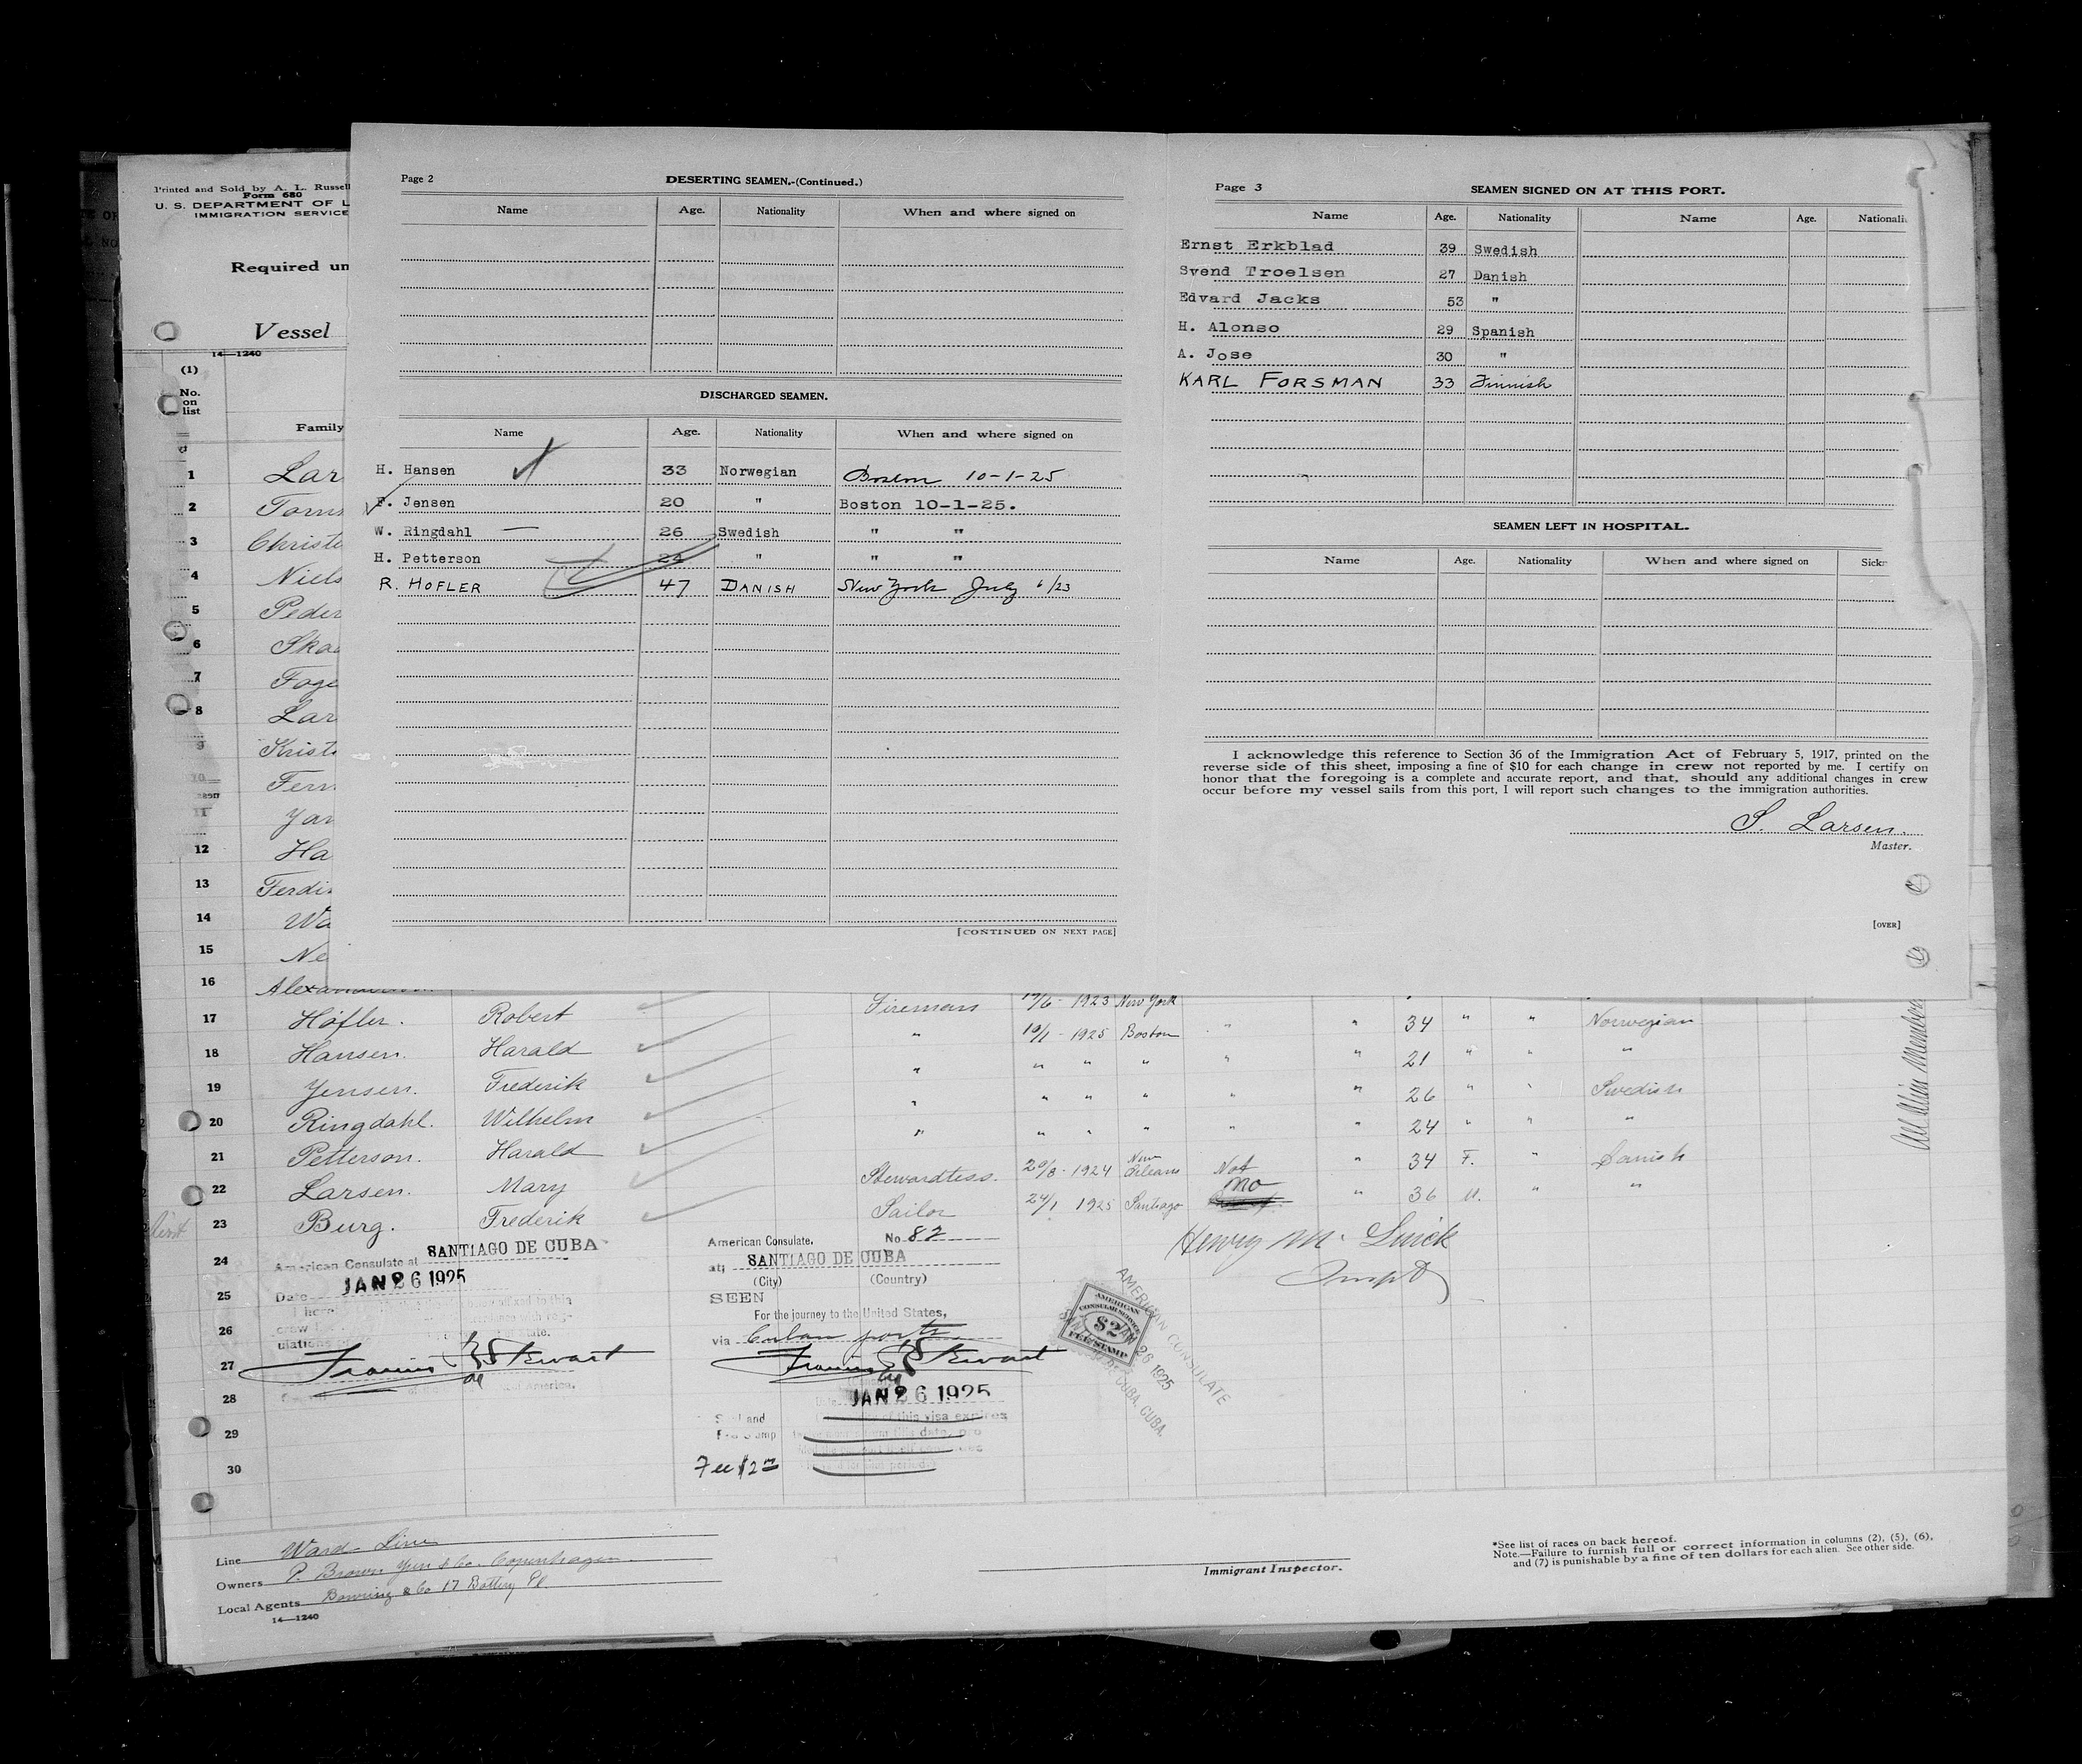 Printed and Sold by A. L. Russell
Form 680
U. S. DEPARTMENT OF L
IMMIGRATION SERVICE
Required un
Vessel
14—1240
(1)
No. on list
Family
1 Lar
2 Torns
3 Christe
4 Niels
5 Peder
6 Skaa
7 Foge
8 Lar
9 Kriste
10 Fern
11 Jan
12 Ha
13 Ferdin
14 Wa
15 Ne
16
Page 2
DESERTING SEAMEN.-(Continued.)
Name Age. Nationality When and where signed on
DISCHARGED SEAMEN.
Name Age. Nationality When and where signed on
H. Hansen 33 Norwegian Boston 10-1-25
F. Jensen 20 " Boston 10-1-25.
W. Ringdahl 26 Swedish " "
H. Petterson 24 " " "
R. HOFLER 47 DANISH New York July 6/23
[CONTINUED ON NEXT PAGE]
Page 3
SEAMEN SIGNED ON AT THIS PORT.
Name Age. Nationality Name Age. Nationali
Ernst Erkblad 39 Swedish
Svend Troelsen 27 Danish
Edvard Jacks 53 "
H. Alonso 29 Spanish
A. Jose 30 "
KARL FORSMAN 33 Finnish
SEAMEN LEFT IN HOSPITAL.
Name Age. Nationality When and where signed on Sickn
I acknowledge this reference to Section 36 of the Immigration Act of February 5, 1917, printed on the
reverse side of this sheet, imposing a fine of $10 for each change in crew not reported by me. I certify on
honor that the foregoing is a complete and accurate report, and that, should any additional changes in crew
occur before my vessel sails from this port, I will report such changes to the immigration authorities.
S. Larsen.
Master.
[OVER]
17 Höfler. Robert Fireman 19/6 - 1923 New York
18 Hansen. Harald " 10/1 - 1925 Boston " " 34 " " Norwegian
19 Jensen. Frederik " " " " " " 21 " " "
20 Ringdahl. Wilhelm " " " " " " 26 " " Swedish
21 Petterson. Harald " " " " " " 24 " " "
22 Larsen. Mary Stewardtess. 20/8 - 1924 New Orleans Not " 34 F. " Danish
23 Burg. Frederik Sailor 24/1 1925 Santiago no " 36 M. " "
All Alien Members
24
25
26
27
28
29
30
American Consulate at SANTIAGO DE CUBA
Date JAN 26 1925
Francis R Stewart
American Consulate. No 82
at; SANTIAGO DE CUBA
(City) (Country)
SEEN
For the journey to the United States,
via Cuban ports
Francis R Stewart
JAN 26 1925
of this visa expires
Fee $2.00
Henry M. Linick
Inspt
AMERICAN CONSULAR SERVICE
$2
FEE STAMP
AMERICAN CONSULATE
JAN 26 1925
SANTIAGO DE CUBA, CUBA.
Line Ward Line
Owners P. Brown Jun & Co. Copenhagen.
Local Agents Bowring & Co 17 Battery Pl
14—1240
Immigrant Inspector.
*See list of races on back hereof.
Note.—Failure to furnish full or correct information in columns (2), (5), (6),
and (7) is punishable by a fine of ten dollars for each alien. See other side.